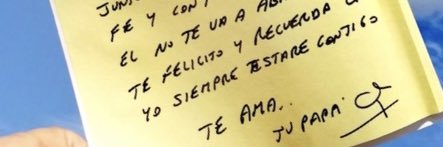 FE Y CON
EL NO TE VA A
TE FELICITO Y RECUERDA
YO SIEMPRE ESTARE CONTIGO
TE AMA..
TU PAPA